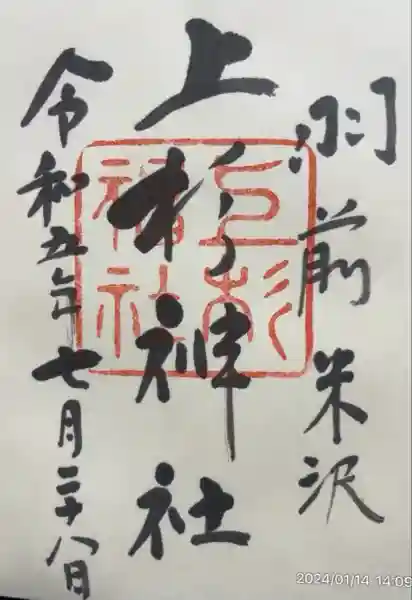 羽前米沢
上杉神社
上杉
神社
令和五年七月二十八日
2024/01/14 14:09